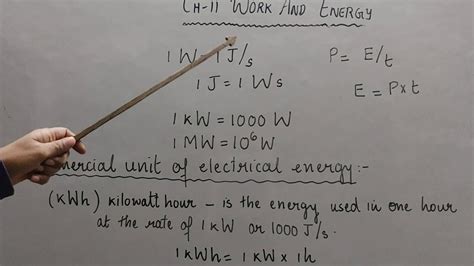 CH-11 WORK AND ENERGY
1 W = 1 J/s
P = E/t
1 J = 1 Ws
E = P×t
1 kW = 1000 W
1 MW = 10⁶ W
mercial unit of electrical energy:-
(kWh) kilowatt hour - is the energy used in one hour
at the rate of 1 kW or 1000 J/s.
1 kWh = 1 kW × 1h